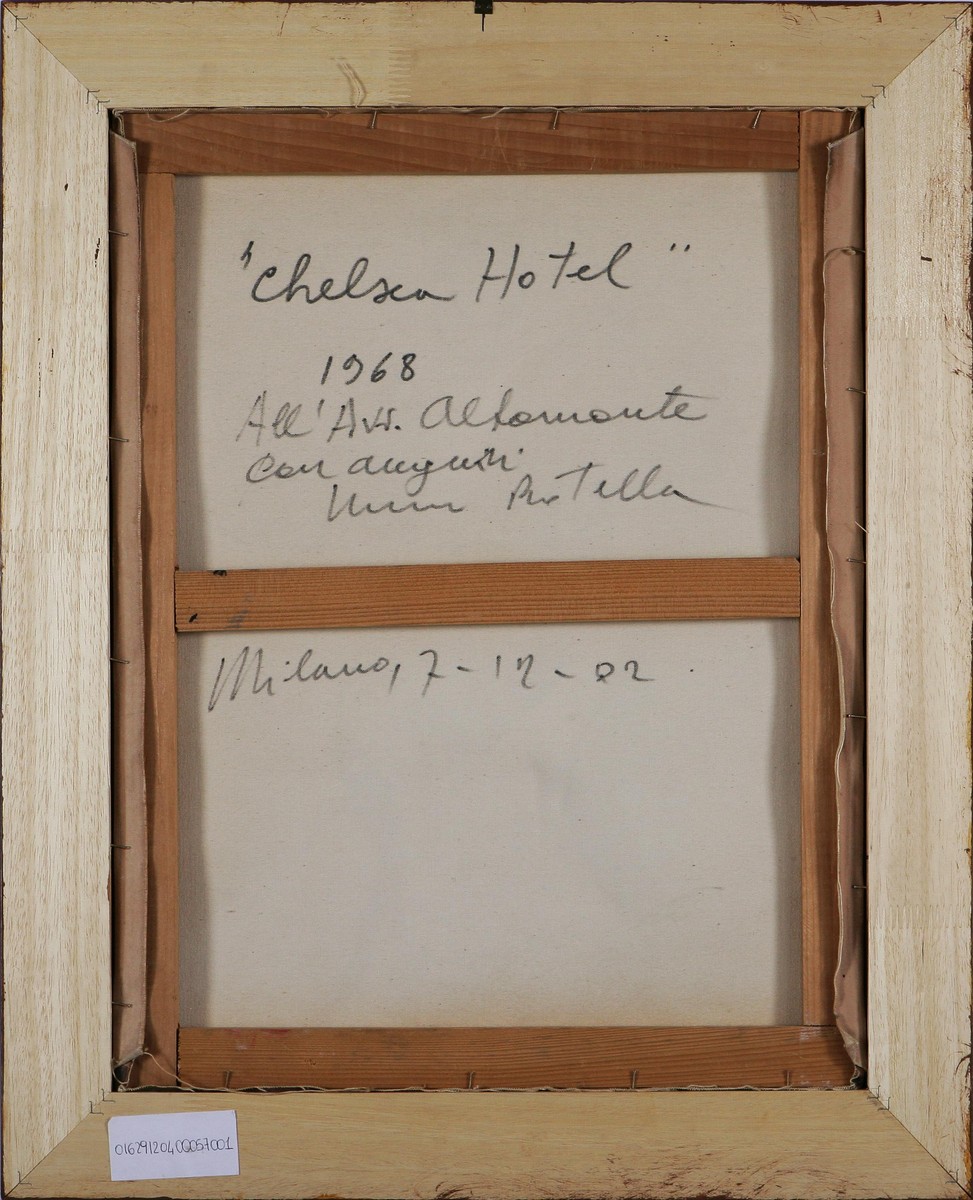 "Chelsea Hotel"
1968
All'Avv. Altamonte
con auguri
Mimmo Rotella
Milano, 7-12-02.
0162912040057001